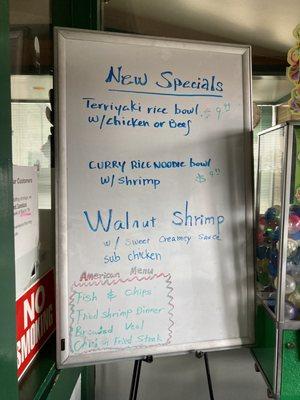 New Specials
Terriyaki rice bowl $9
w/chicken or Beef
CURRY RICE NOODLE bowl
w/ shrimp $9
Walnut Shrimp
w/ Sweet Creamy Sauce
sub chicken
American Menu
Fish & Chips
Fried Shrimp Dinner
Breaded Veal
Chicken Fried Steak
NO
SMOKING